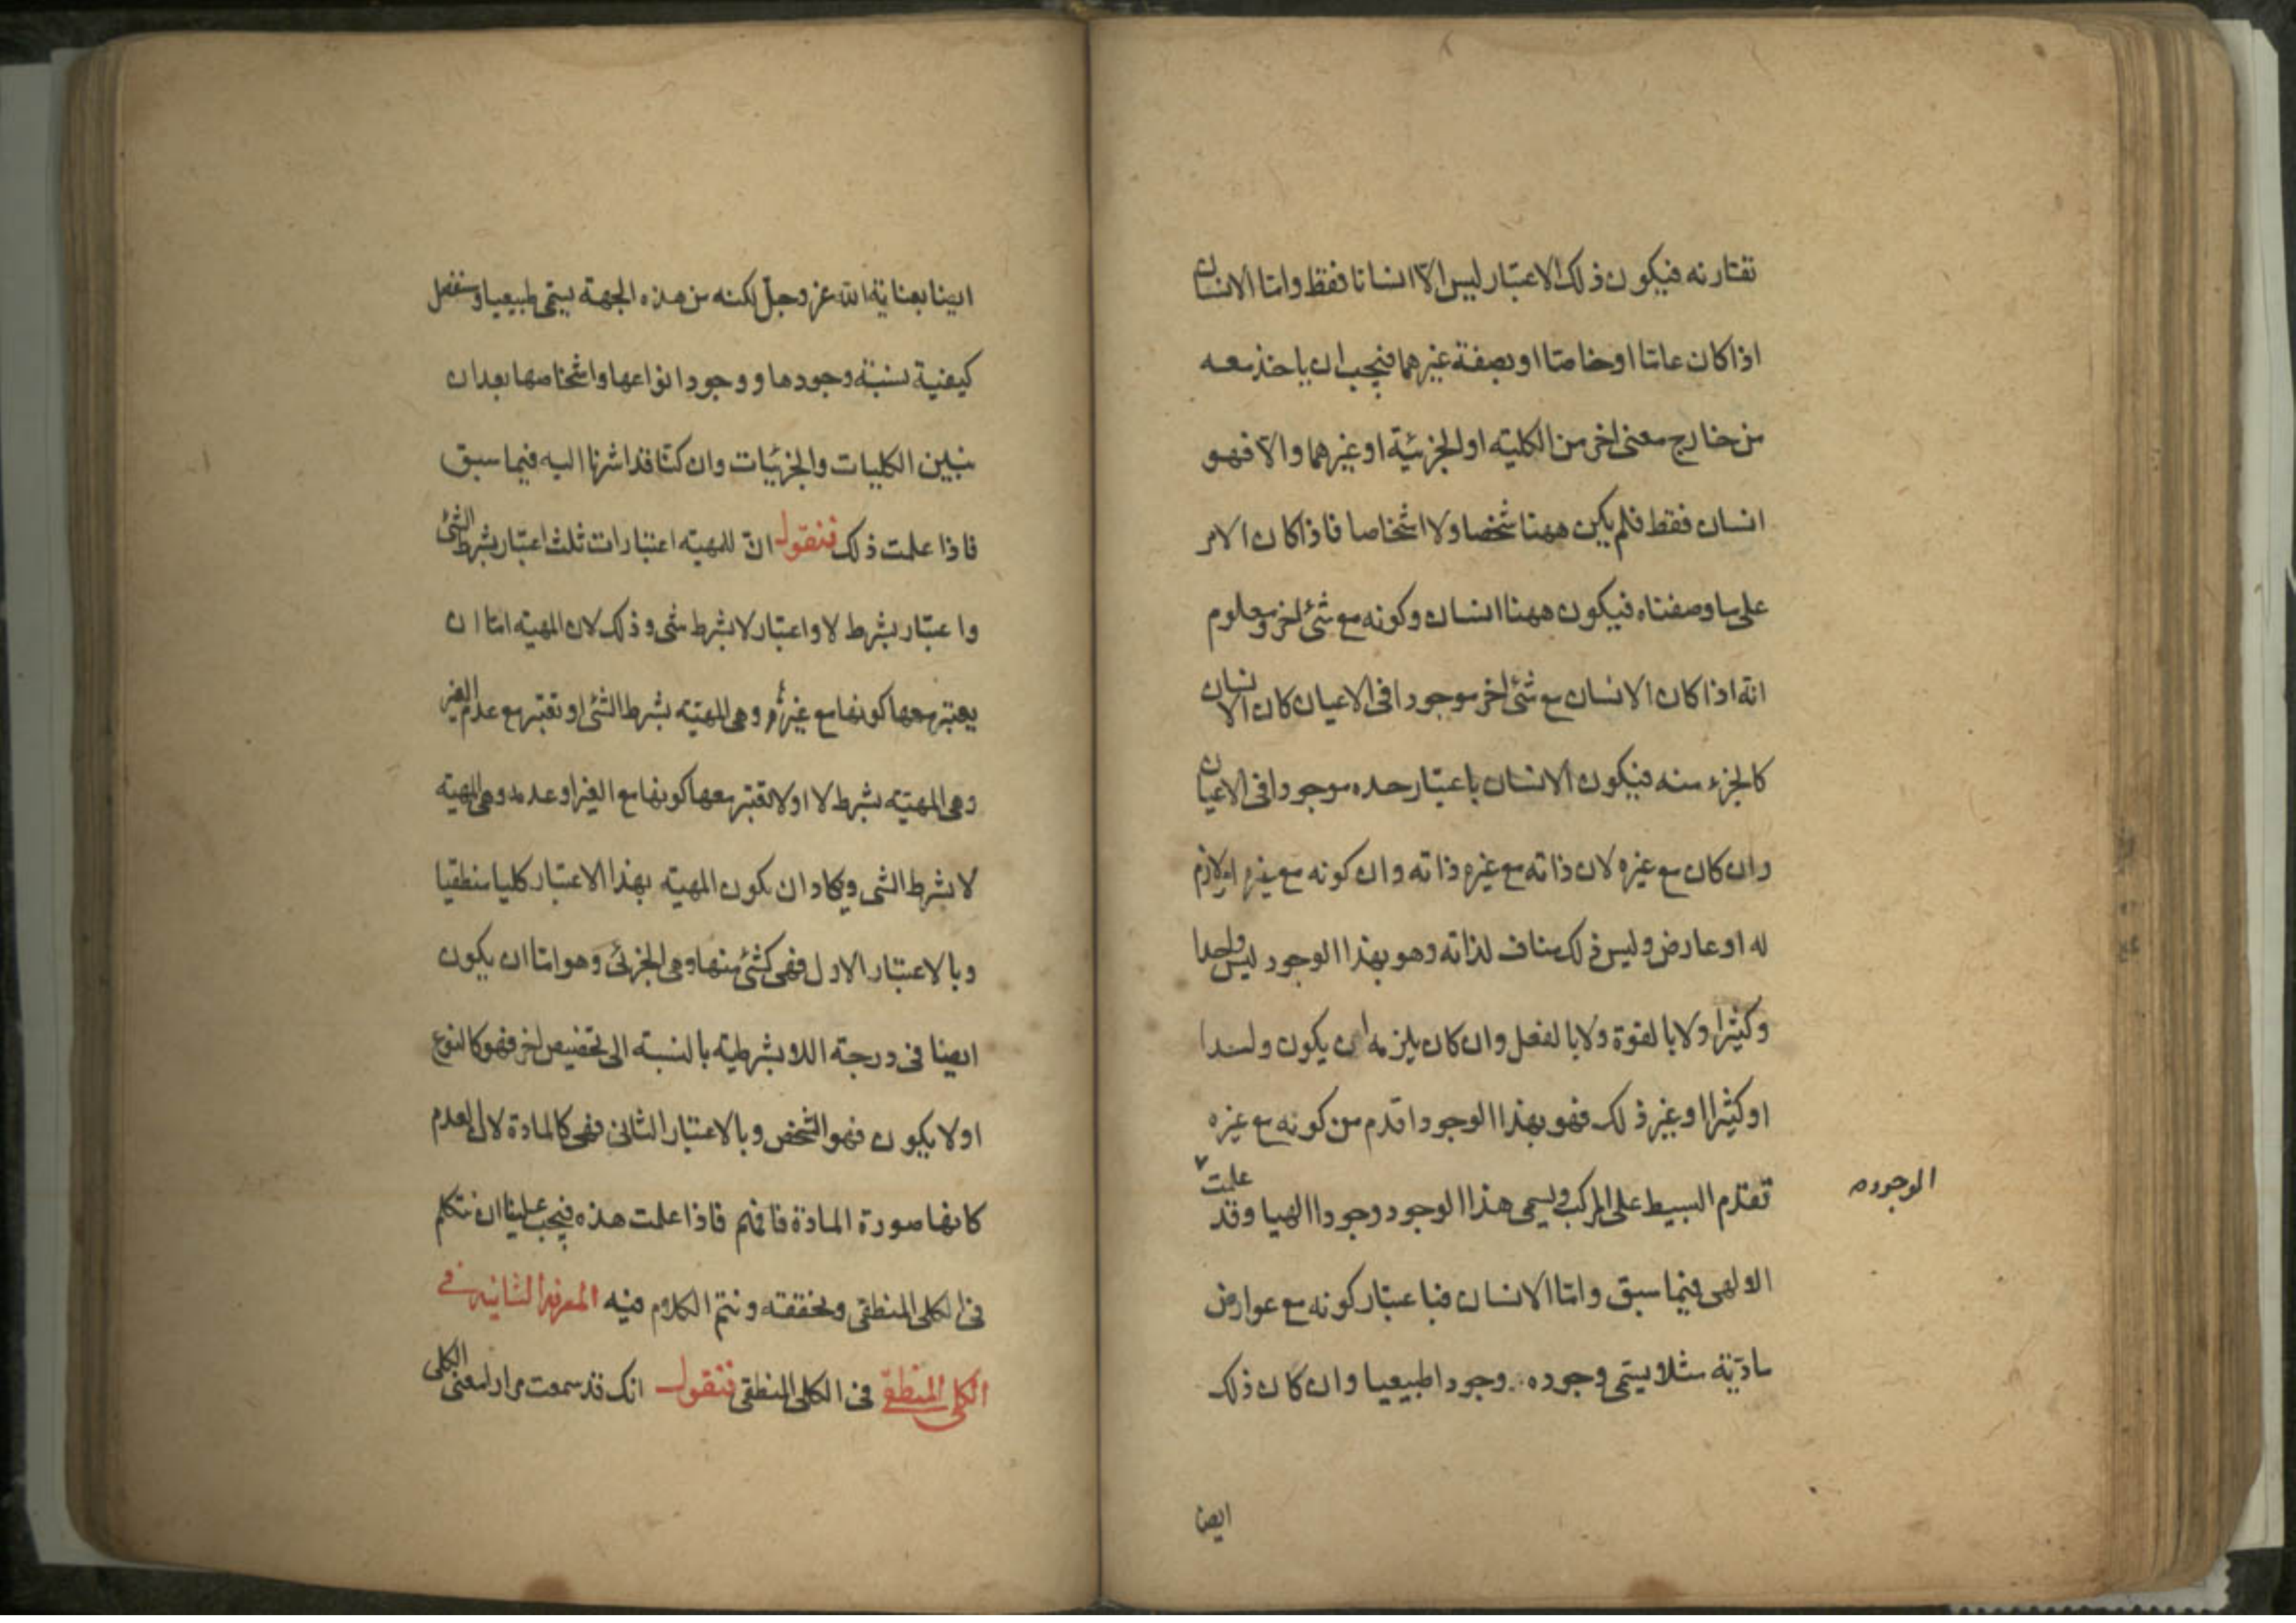 تقارنه فيكون ذلك الاعتبار ليس الّا انسانا فقط وامّا الانسان
اذا كان عامّا او خاصّا او بصفة غيرهما فيجب ان ياخذ معه
من خارج معنى اخر من الكلية او الجزئية او غيرهما والّا فهو
انسان فقط فلم يكن ههنا شخصا ولا اشخاصا فاذا كان الامر
على ما وصفناه فيكون ههنا انسان وكونه مع شئ اخر ومعلوم
انه اذا كان الانسان مع شئ اخر موجودا فى الاعيان كان الانسان
كالجزء منه فيكون الانسان باعتبار حده موجودا فى الاعيان
وان كان مع غيره لان ذاته مع غيره ذاته وان كونه مع غيره امر لازم
له او عارض وليس ذلك مناف لذاته وهو بهذا الوجود ليس واحدا
وكثيرا ولا بالقوة ولا بالفعل وان كان يلزمه ان يكون واحدا
او كثيرا او غير ذلك فهو بهذا الوجود اقدم من كونه مع غيره
تقدم البسيط على المركب ويسمى هذا الوجود وجودا الهيا وقد علمت
الوجود
الالهى فيما سبق وامّا الانسان فباعتبار كونه مع عوارض
مادّية مثلا يسمّى وجوده وجودا طبيعيا وان كان ذلك
ايضا
ايضا بعناية الله عز وجلّ لكنه من هذه الجهة يسمّى طبيعيا وسنفصل
كيفية نسبة وجودها ووجود انواعها واشخاصها بعد ان
نبين الكليات والجزئيات وان كنّا قد اشرنا اليه فيما سبق
فاذا علمت ذلك فنقول انّ للمهية اعتبارات ثلث اعتبار بشرط الشئ
واعتبار بشرط لا واعتبار لا بشرط شى وذلك لان المهية امّا ان
يعتبر معها كونها مع غيرٍ ما وهى المهية بشرط الشئ او تعتبر مع عدم الغير
وهى المهية بشرط لا او لا تعتبر معها كونها مع الغير او عدمه وهى المهية
لا بشرط الشى ويكاد ان يكون المهية بهذا الاعتبار كليا منطقيا
وبالاعتبار الاول فهى كشئ منها وهى الجزئى وهو امّا ان يكون
ايضا فى درجة اللابشرطية بالنسبة الى تخصيص اخر فهو كالنوع
او لا يكون فهو الشخص وبالاعتبار الثانى فهى كالمادة لان العدم
كانها صورة المادة فافهم فاذا علمت هذه فيجب علينا ان نتكلم
فى الكلى المنطقى ونحققه ونتم الكلام فيه المعرفة الثانية فى
الكلى المنطقى فى الكلى المنطقى فنقول انك قد سمعت مرارا معنى الكلى